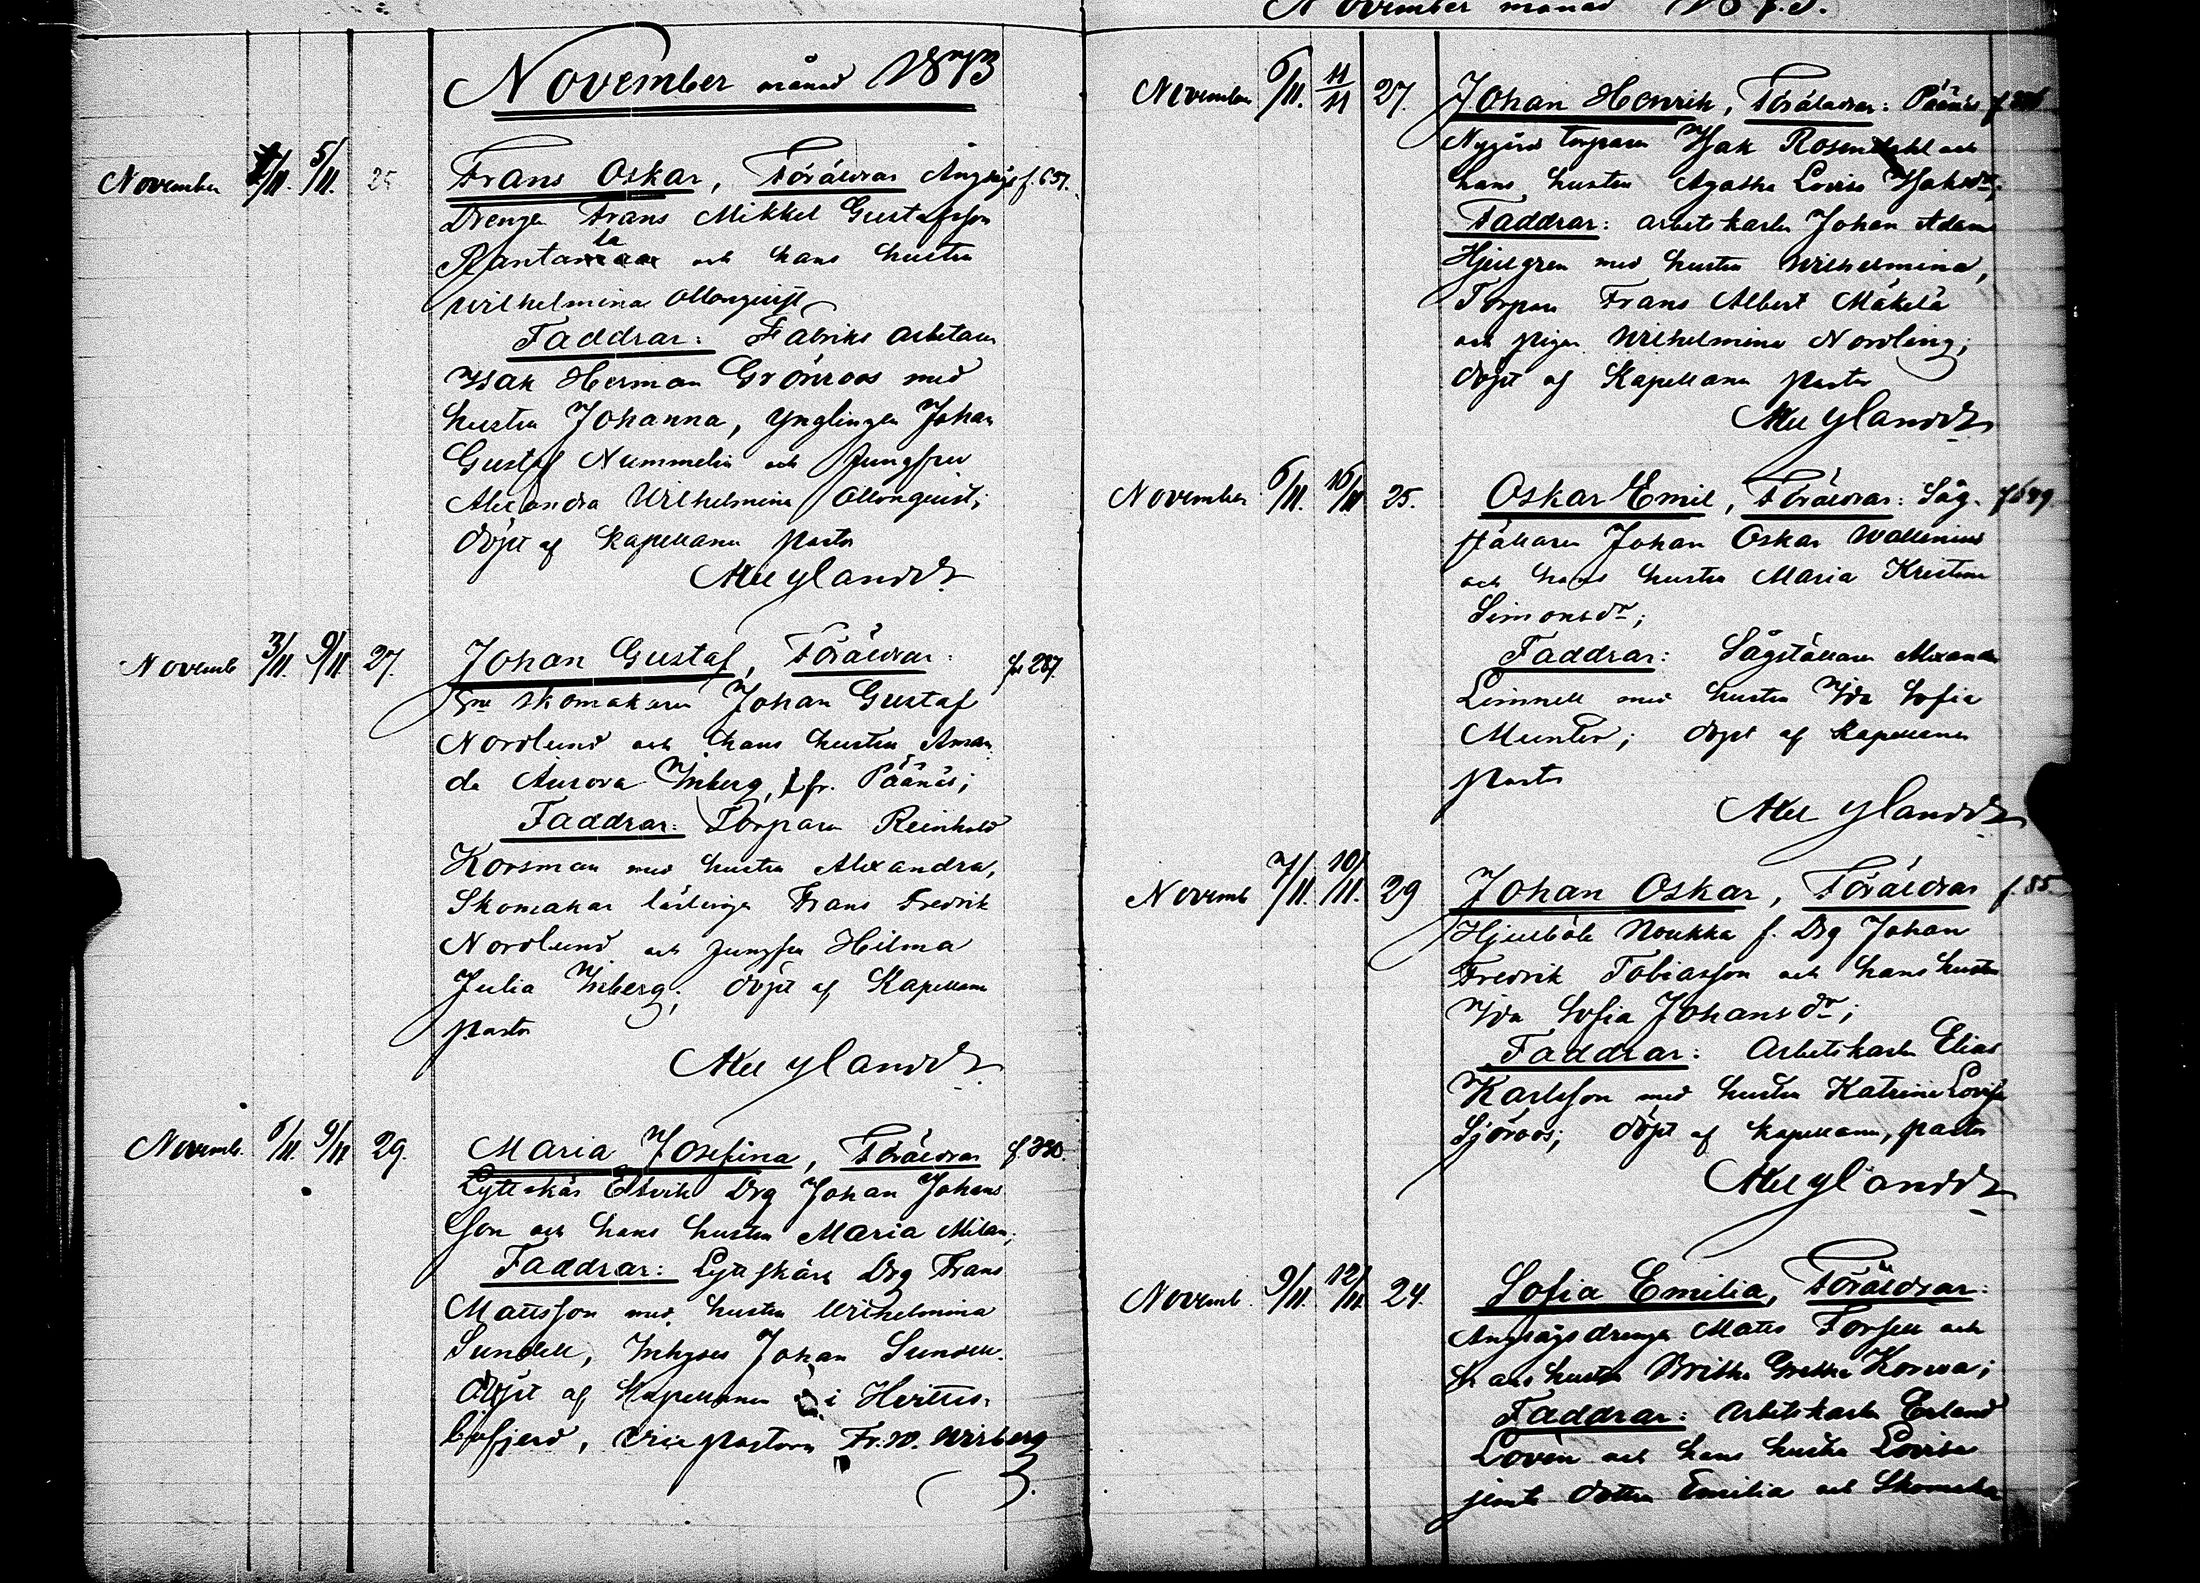 November månad 1873
November 4/11. 5/11. 25 Frans Oskar, Föräldrar Ångsågs f. 651.
Drengen Frans Mikkel Gustafsson
Rantala och hans hustru
Wilhelmina Ollonquist
Faddrar: Fabriks arbetaren
Isak Herman Grönroos med
hustru Johanna, ynglingen Johan
Gustaf Nummelin och Jungfru
Alexandra Wilhelmina Ollonquist;
döpt af Kapellanen pastor
Axel Ylander
Novemb 3/11. 9/11. 27. Johan Gustaf, Föräldrar: 287.
Skomakaren Johan Gustaf
Nordlund och hans hustru Aman
da Aurora Inberg, fr. Påänäs;
Faddrar: Torparen Reinhold
Korsman med hustru Alexandra,
Skomakar lärlinge Frans Fredrik
Nordlund och jungfru Hilma
Julia Inberg; döpt af Kapellanen
pastor
Axel Ylander
Novemb. 6/11. 9/11 29. Maria Josefina, Föräldrar f 330.
Lyttskär Drg Johan Johans
son och hans hustru Maria Milan;
Faddrar: Lyttskärs Drg Frans
Mattsson med hustru Wilhelmina
Sundell, Inhyses Johan Sundell.
döpt af Kapellanen i Hvittis-
bofjerd, Vice pastorn Fr. W. Wirberg
November månad 187.3.
November 6/11. 11/11 27. Johan Henrik, Föräldrar: Påänäs
Nygård torparen Isak Rosendahl och
hans hustru Agatha Lovisa Isaksdr;
Faddrar: arbetskarlen Johan Adam
Hjulgren med hustru Wilhelmina,
Torparen Frans Albert Mäkelä
och pigan Wilhelmina Nordling;
döpt af Kapellanen pastor
Axel Ylander
November 6/11. 10/11 25. Oskar Emil, Föräldrar: Såg- f 649.
ställaren Johan Oskar Wallenius
och hans hustru Maria Kristina
Simonsdr;
Faddrar: Sågställaren Alexander
Limnell med hustru Ida Sofia
Munter; döpt af Kapellanen
pastor
Axel Ylander
Novemb 7/11. 10/11. 29 Johan Oskar, Föräldrar f. 55
Hjulböle Noukka f. Drg Johan
Fredrik Tobiasson och hans hustru
Ida Sofia Johansdr;
Faddrar: Arbetskarlen Elias
Karlsson med hustru Katrina Lovisa
Sjöroos; döpt af kapellanen, pastor
Axel Ylander
Novemb. 9/11. 12/11. 24. Sofia Emilia, Föräldrar:
Ångsågsdrengen Matts Forsell och
hans hustru Britha Gretha Korwa;
Faddrar: Arbetskarlen Erland
Lovén och hans hustru Lovisa
jemte dotter Emilia och Skomaka